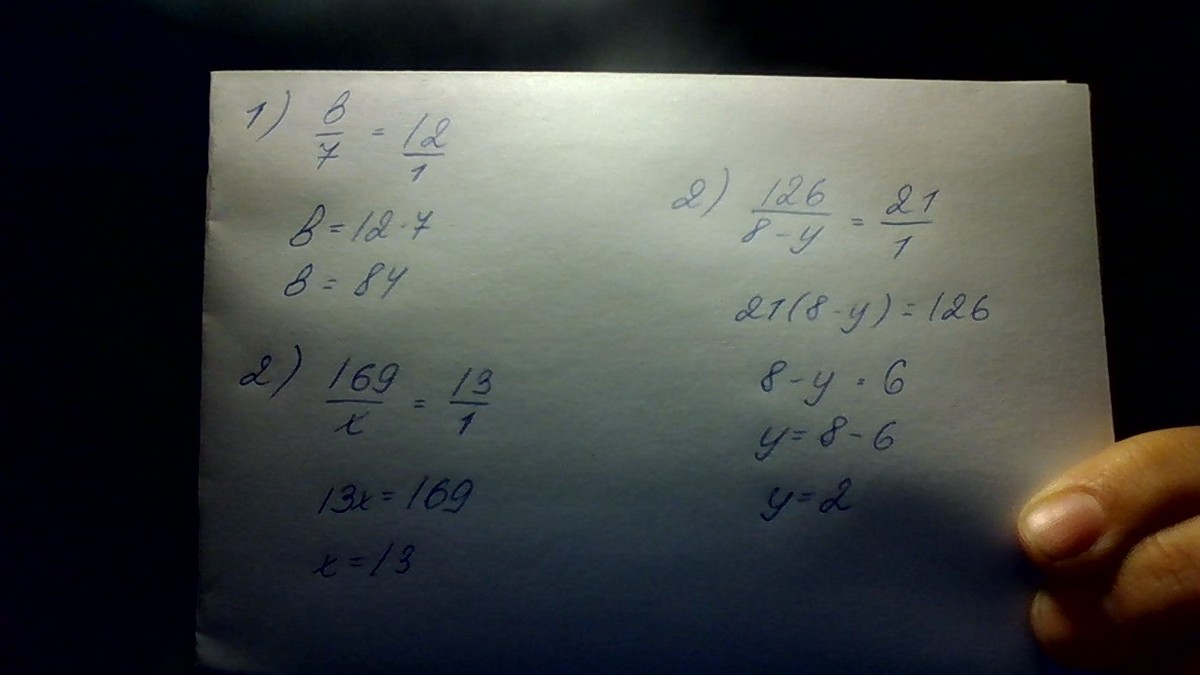 1) в/7 = 12/1
в = 12 · 7
в = 84
2) 169/x = 13/1
13x = 169
x = 13
2) 126/8-y = 21/1
21(8-y) = 126
8-y = 6
y = 8-6
y = 2